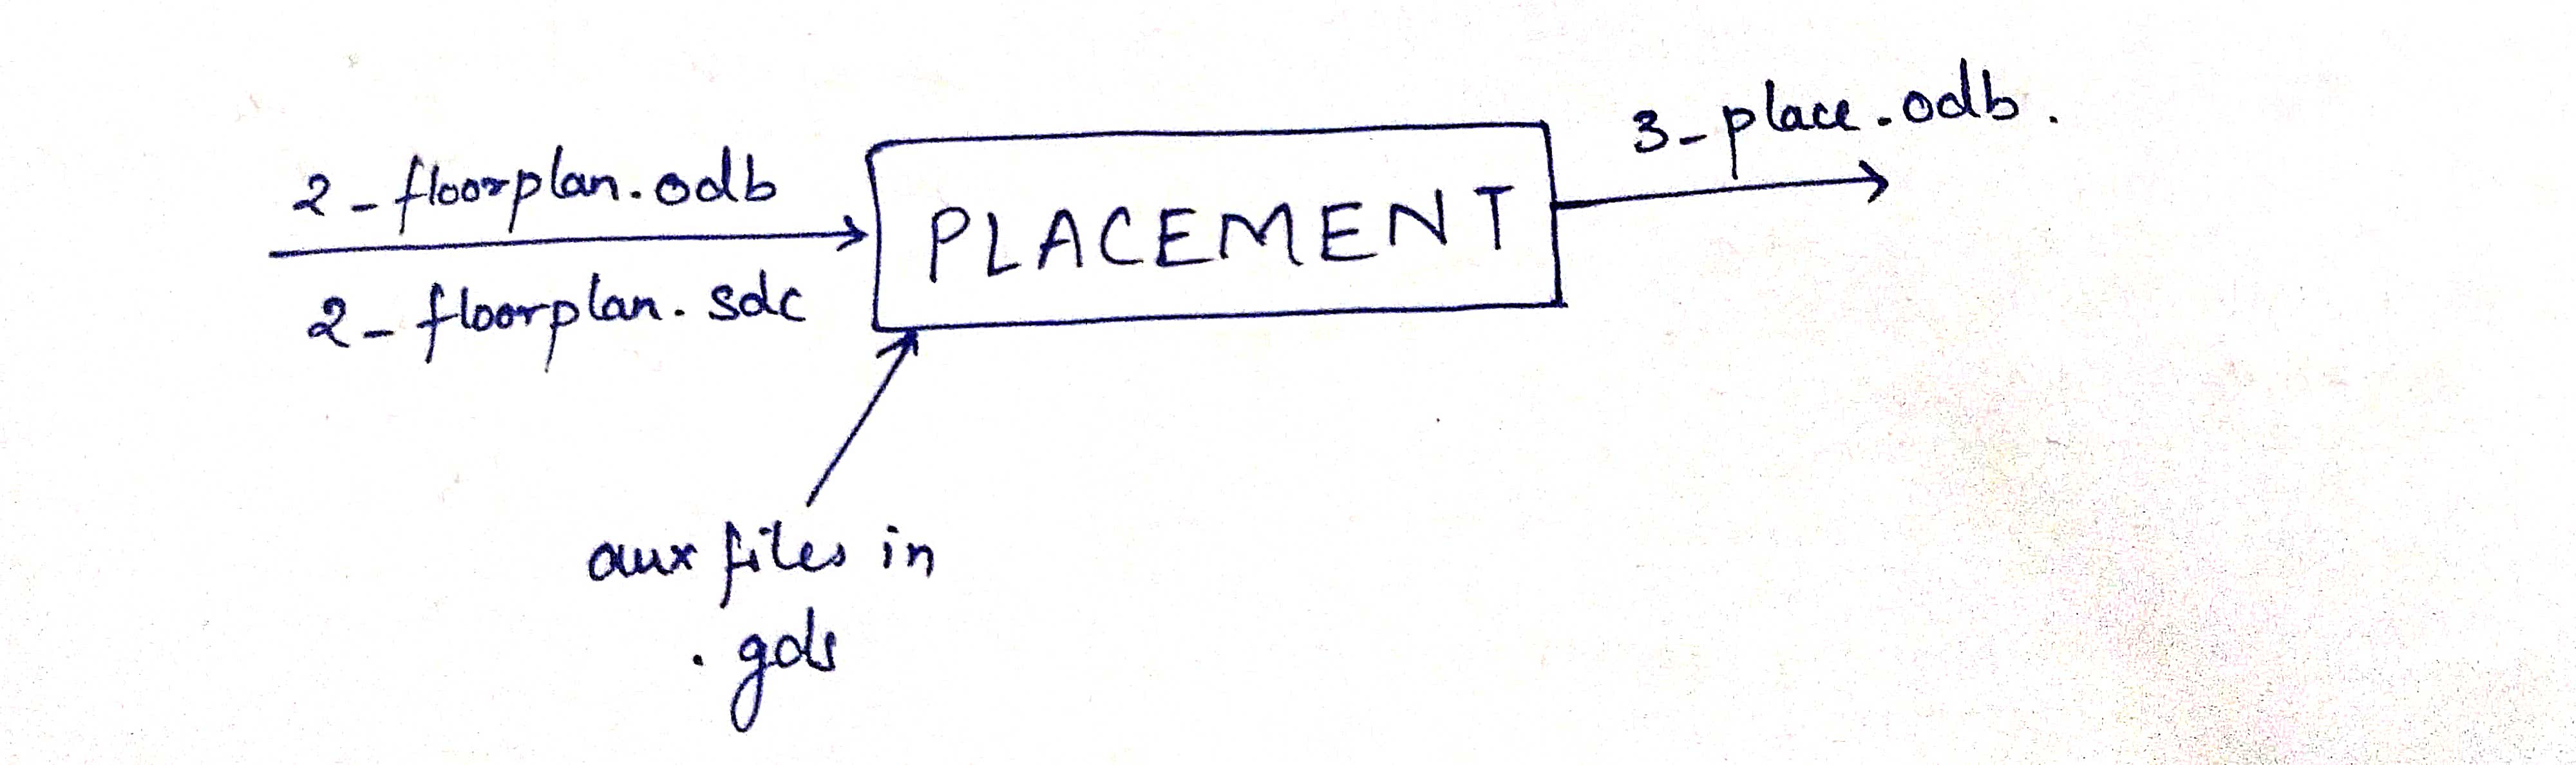 2_floorplan.odb
2_floorplan.sdc
PLACEMENT
3_place.odb.
aux files in
.gds